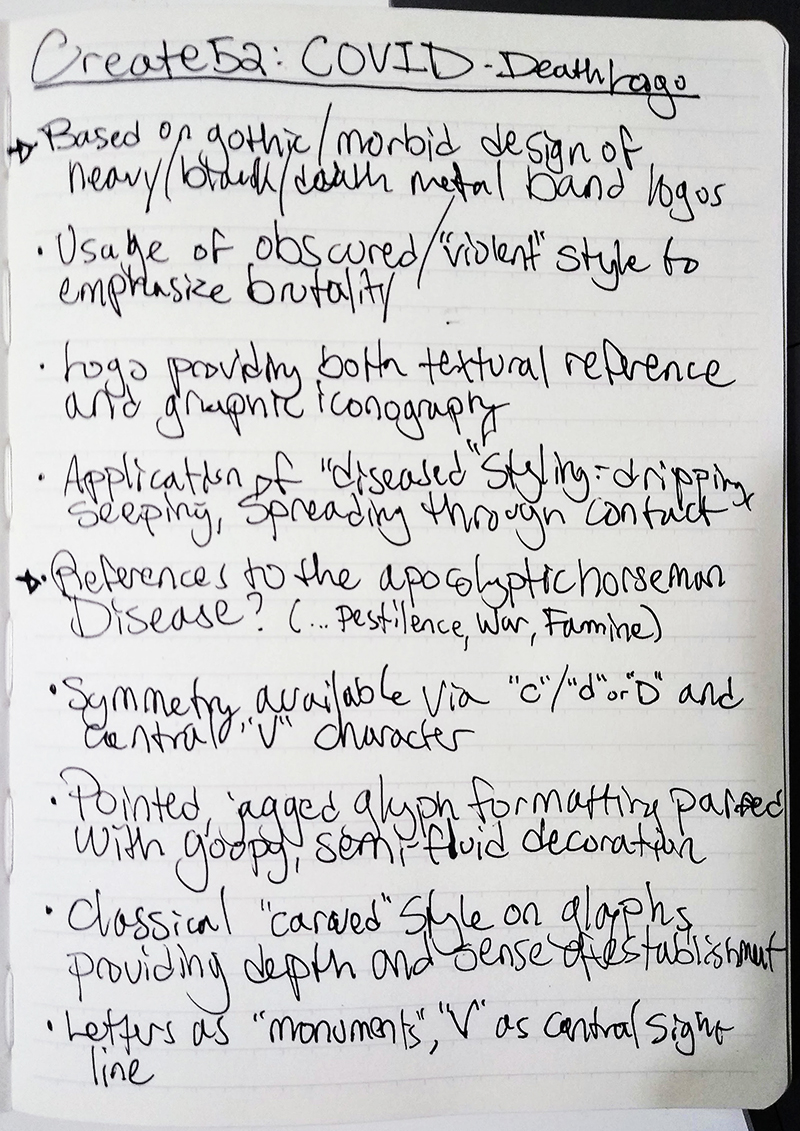 Create52: COVID-Death Logo
→ Based on gothic/morbid design of
heavy/black/death metal band logos
• Usage of obscured/"violent" style to
emphasize brutality
• Logo providing both textural reference
and graphic iconography
• Application of "diseased" styling - dripping,
seeping, spreading through contact
→• References to the apocolyptic horseman
Disease? (... Pestilence, War, Famine)
• Symmetry available via "c"/"d" or "D" and
central "V" character
• Pointed, jagged glyph formatting paired
with goopy, semi-fluid decoration
• Classical "carved" style on glyphs,
providing depth and sense of establishment
• Letters as "monuments", "V" as central sight
line